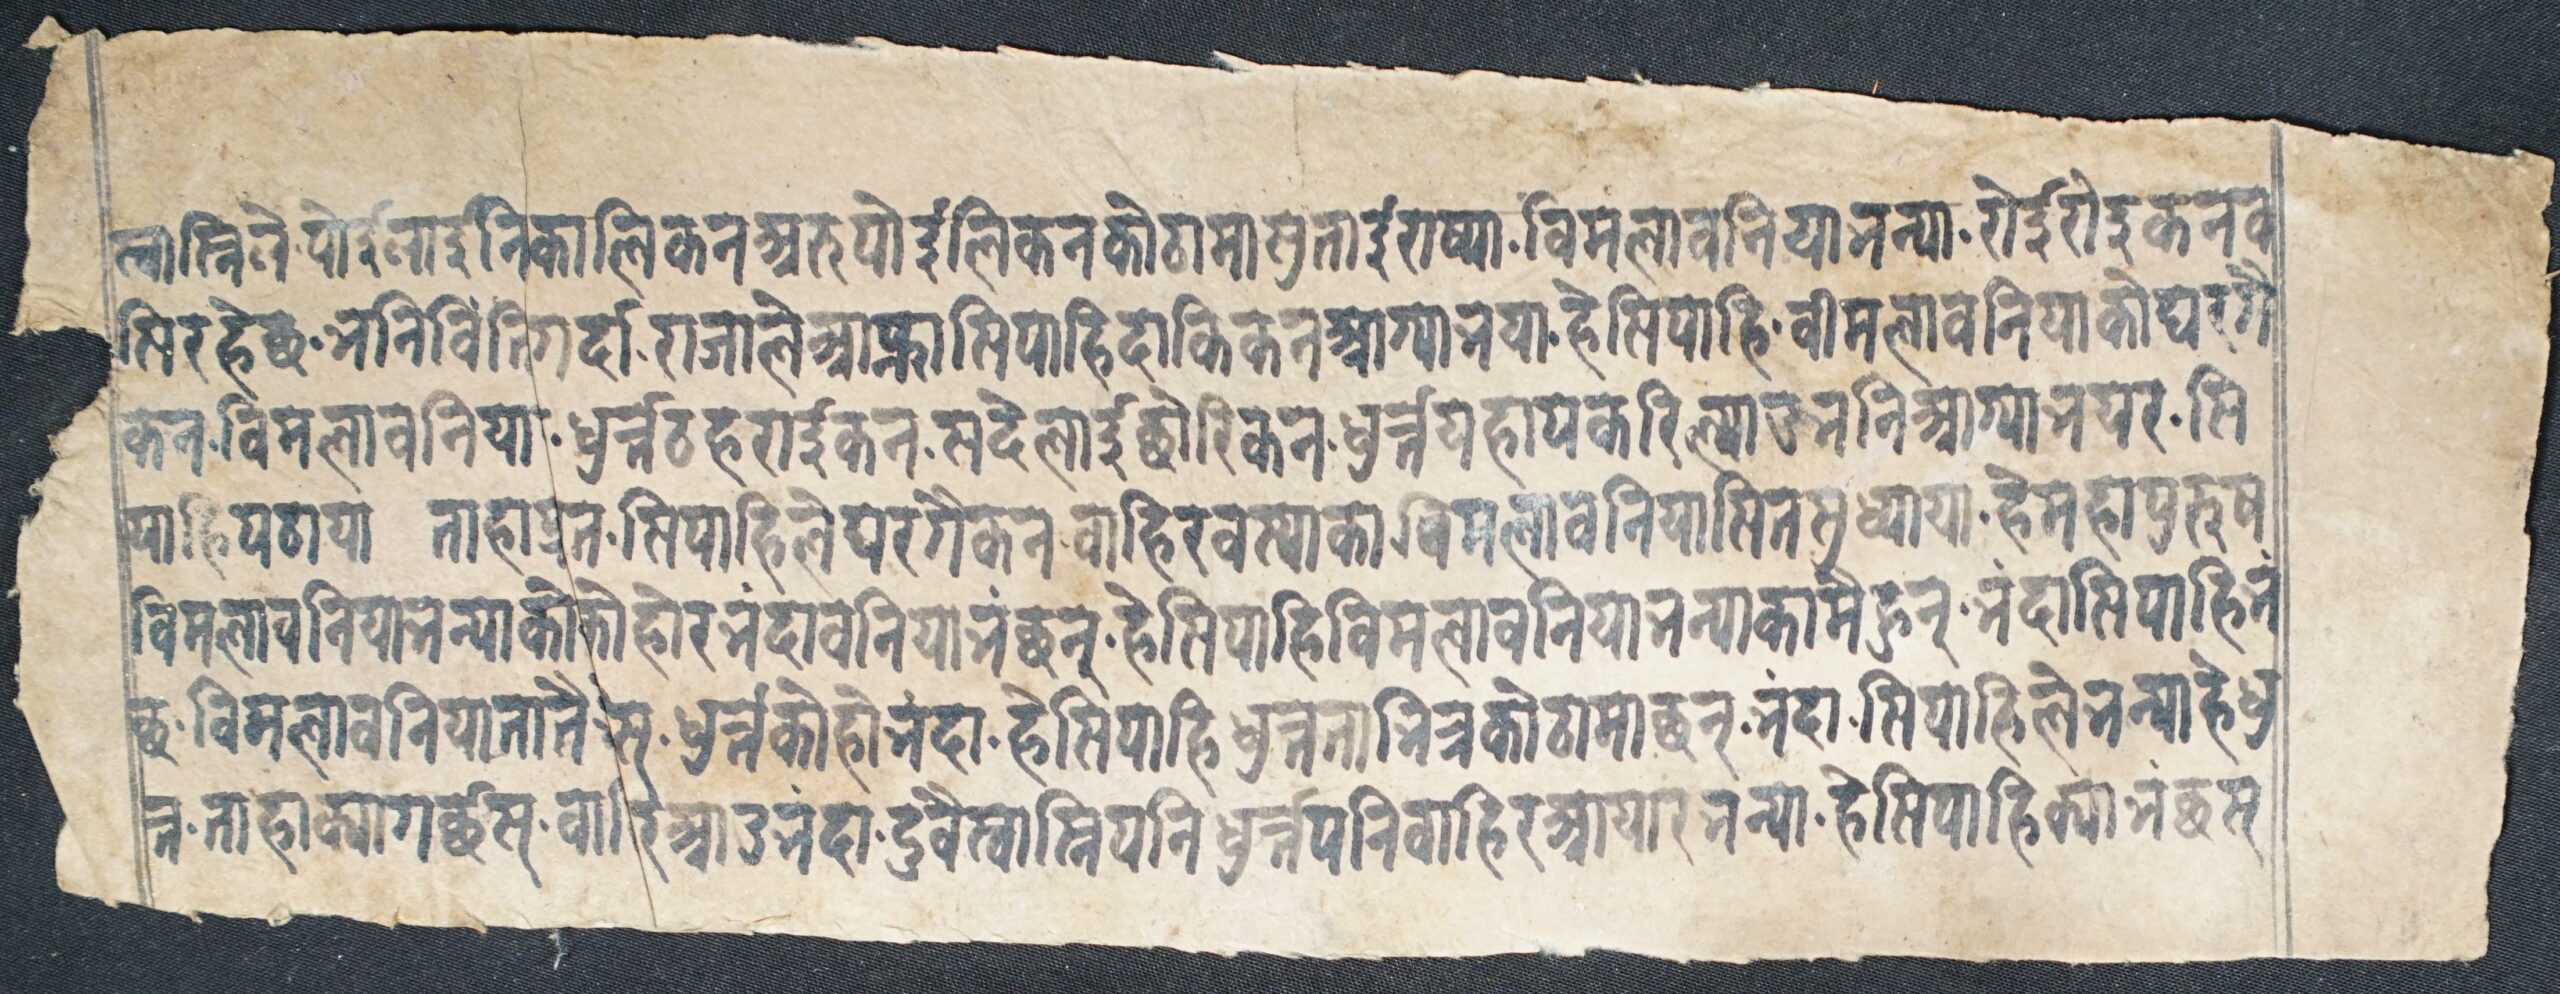 स्वास्निले·पोईलाईनिकालिकनअरुपोईलिकनकोठामासुताईराष्या·विमलावनियाभन्या·रोईरोइकनव
सिरहेछ·भनिविंतिगर्दा·राजालेआफ्नासिपाहिदाकिकनआग्याभया·हेसिपाहि·वीमलावनियाकोघरगै
कन·विमलावनिया·धुर्त्तठहराईकन·सदैलाईछोरिकन·धुर्त्तयहापकरिल्याउभनिआग्याभयर·सि
पाहिपठाया ताहापुन·सिपाहिलेघरगैकन·वाहिरवस्याका·विमलावनियासितसुध्याया·हेमहापुरुष
विमलावनियाभन्याकोकोहोरभंदावनियाभंछन्·हेसिपाहिविमलावनियाभन्याकामैहुन्·भंदासिपाहिभं
छ·विमलावनियातातैस्·धुर्त्तकोहोभंदा·हेसिपाहिधुर्त्तताभित्रकोठामाछन्·भंदा·सिपाहिलेभन्याहेधु
र्त्त·ताहाक्यागर्छस्·वाहिरआउभंदा·दुवैस्वास्निपनिधुर्त्तपनिवाहिरआयारभन्या·हेसिपाहिक्याभंछस्